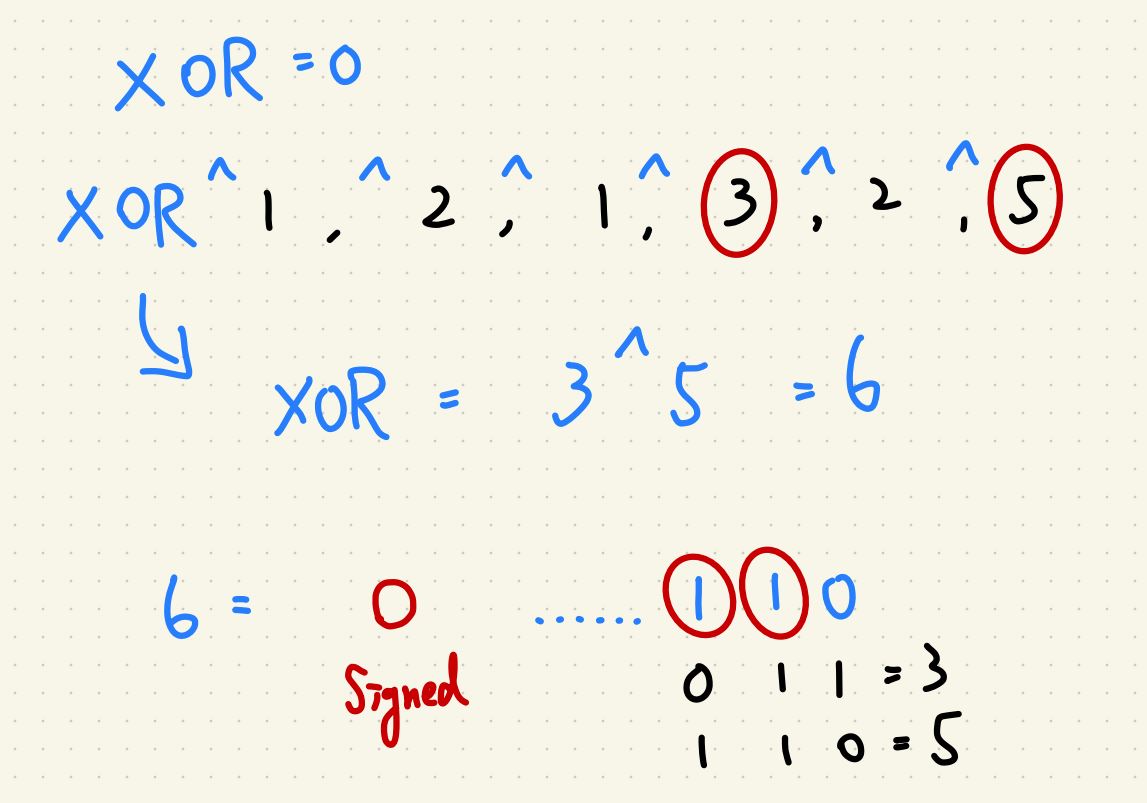 XOR = 0
XOR ^ 1, ^ 2, ^ 1, ^ 3, ^ 2, ^ 5
XOR = 3 ^ 5 = 6
6 = 0 ...... 1 1 0
Signed 0 1 1 = 3
1 1 0 = 5